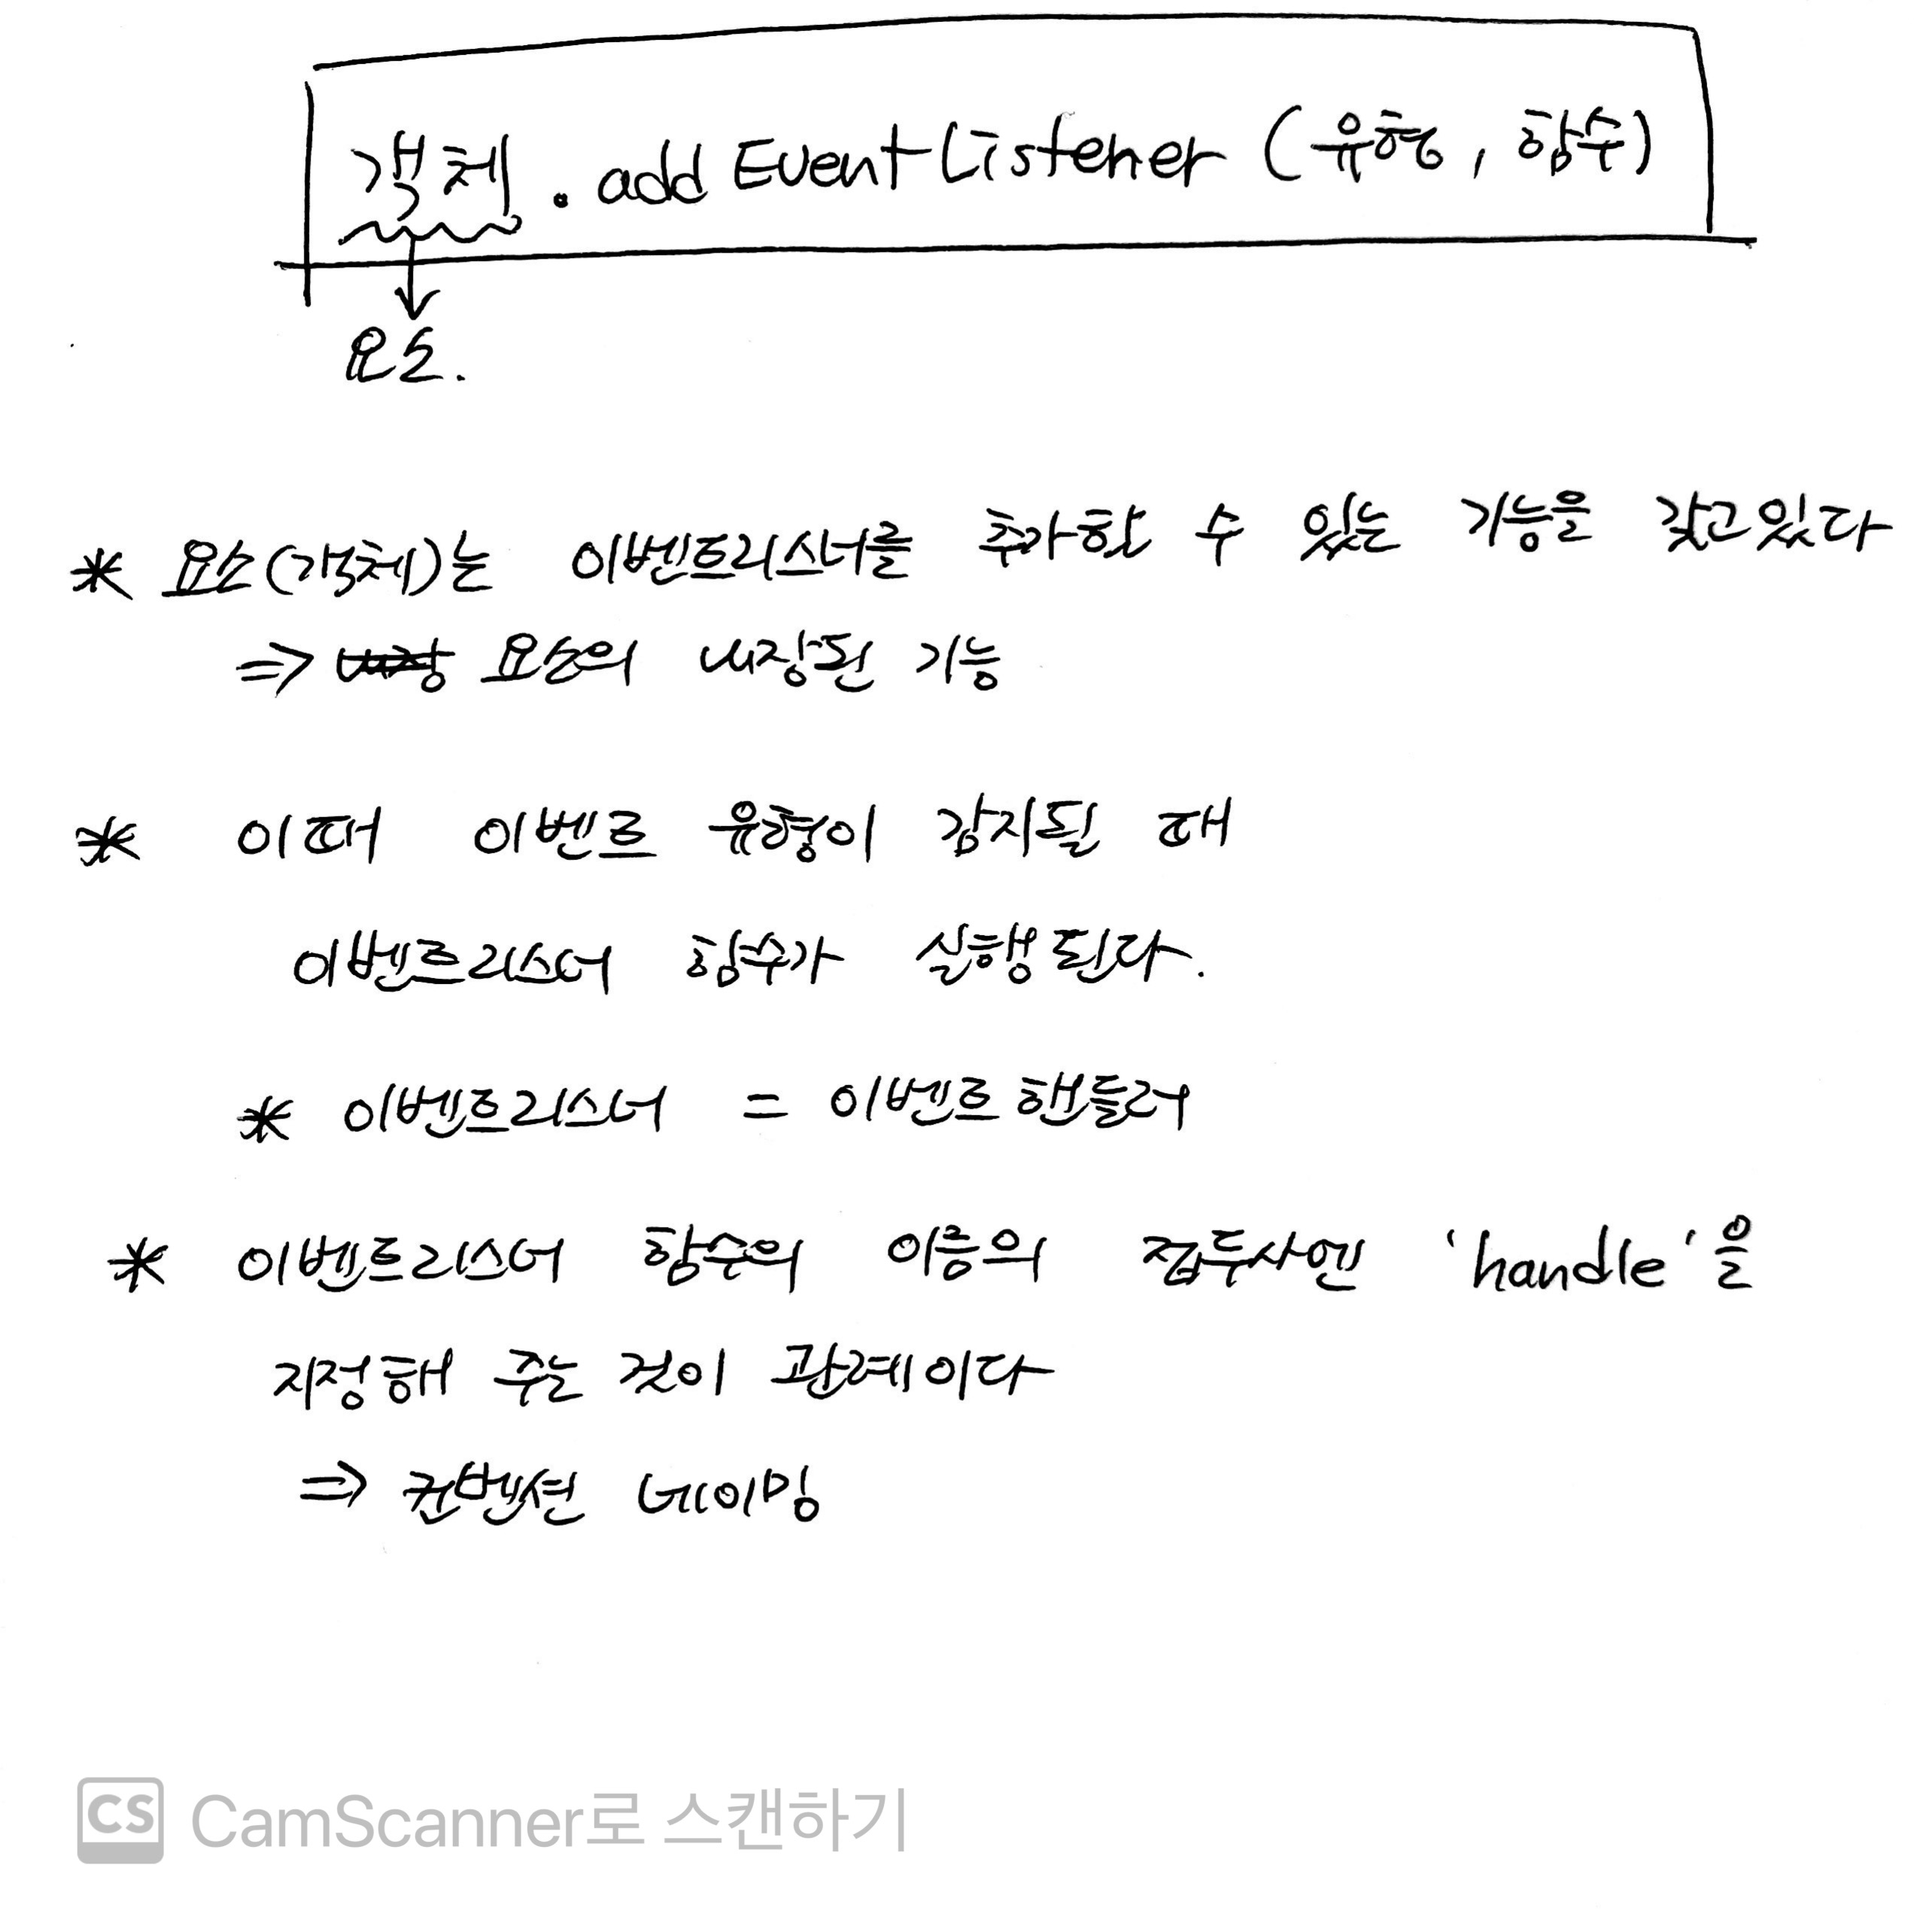 객체.addEventListener (유형, 함수)
요소.
* 요소(객체)는 이벤트리스너를 추가할 수 있는 기능을 갖고있다
=> 내장 요소의 내장된 기능
* 이때 이벤트 유형이 감지될 때
이벤트리스너 함수가 실행된다.
* 이벤트리스너 = 이벤트 핸들러
* 이벤트리스너 함수의 이름의 접두사엔 'handle'을
지정해 주는 것이 관례이다
=> 컨벤션 네이밍
CS CamScanner로 스캔하기